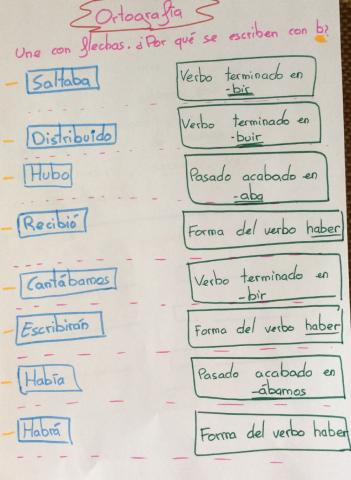 Ortografía
Une con flechas. ¿Por qué se escriben con b?
Saltaba
Verbo terminado en
-bir
Distribuido
Verbo terminado en
-buir
Hubo
Pasado acabado en
-aba
Recibió
Forma del verbo haber
Cantábamos
Verbo terminado en
-bir
Escribirán
Forma del verbo haber
Había
Pasado acabado en
-ábamos
Habrá
Forma del verbo haber